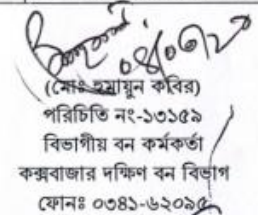 (মোঃ হুমায়ুন কবির)
পরিচিতি নং-১৩১৫৯
বিভাগীয় বন কর্মকর্তা
কক্সবাজার দক্ষিণ বন বিভাগ
ফোনঃ ০৩৪১-৬২০৯৫